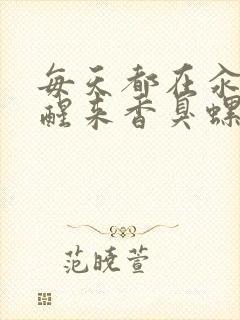 每天都在汆
醒来香臭螺
范晓萱